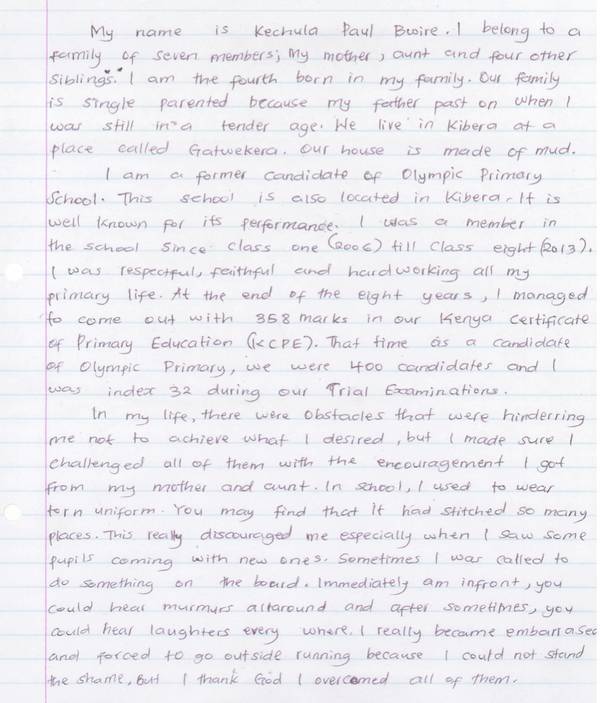 My name is Kechula Paul Bwire. I belong to a
family of seven members; My mother, aunt and four other
siblings. I am the fourth born in my family. Our family
is single parented because my father past on when I
was still in a tender age. We live in Kibera at a
place called Gatwekera. Our house is made of mud.
I am a former candidate of Olympic Primary
School. This school is also located in Kibera. It is
well known for its performance. I was a member in
the school since class one (2006) till class eight (2013).
I was respectful, faithful and hardworking all my
primary life. At the end of the eight years, I managed
to come out with 358 marks in our Kenya Certificate
of Primary Education (KCPE). That time as a candidate
of Olympic Primary, we were 400 candidates and I
was index 32 during our Trial Examinations.
In my life, there were obstacles that were hinderring
me not to achieve what I desired, but I made sure I
challenged all of them with the encouragement I got
from my mother and aunt. In school, I used to wear
torn uniform. You may find that it had stitched so many
places. This really discouraged me especially when I saw some
pupils coming with new ones. Sometimes I was called to
do something on the board. Immediately am infront, you
could hear murmurs allaround and after sometimes, you
could hear laughters every where. I really became embarrased
and forced to go outside running because I could not stand
the shame, but I thank God I overcomed all of them.